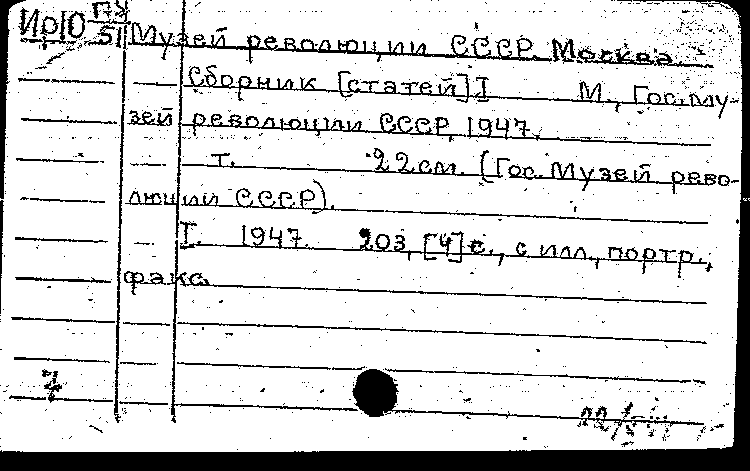 ИрЮ ПУ/51 Музей революции СССР. Москва.
Сборник [статей] I М., Гос. му-
зей революции СССР, 1947.
т. 22см. (Гос. Музей рево-
люции СССР).
I. 1947. 203, [4] с., с илл., портр.,
факс.
7